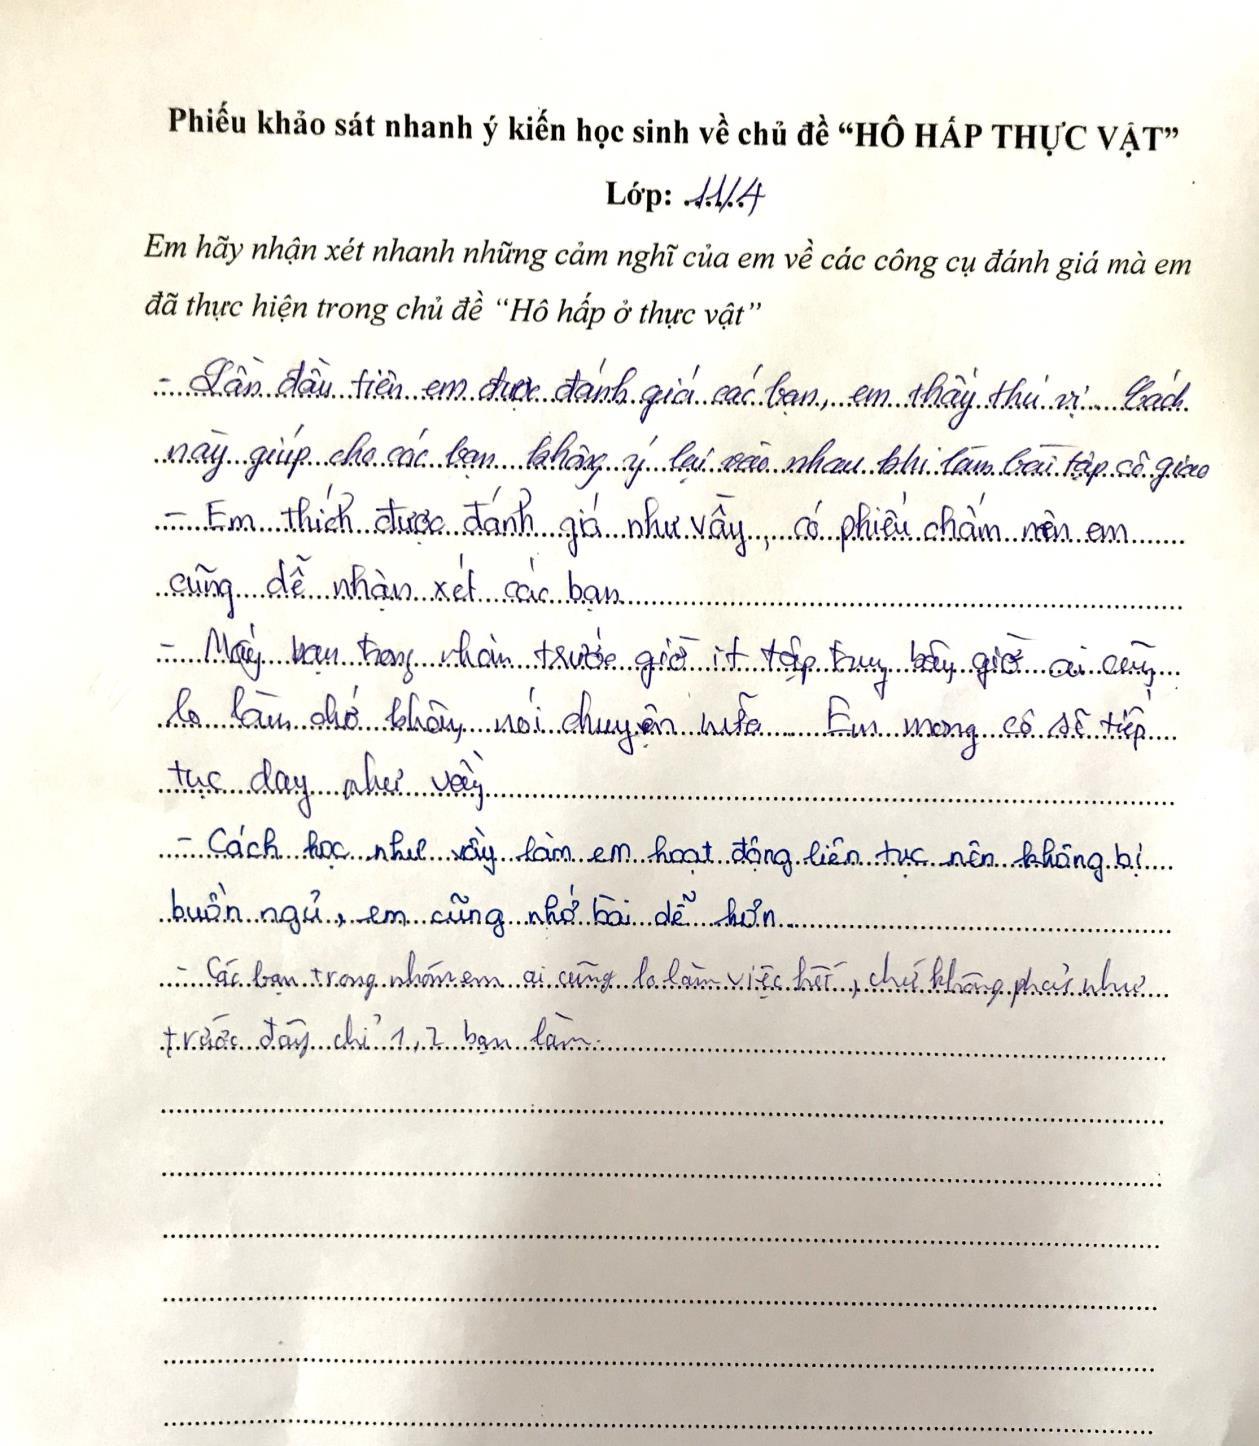 Phiếu khảo sát nhanh ý kiến học sinh về chủ đề “HÔ HẤP THỰC VẬT”
Lớp: 11/4
Em hãy nhận xét nhanh những cảm nghĩ của em về các công cụ đánh giá mà em
đã thực hiện trong chủ đề “Hô hấp ở thực vật”
- Lần đầu tiên em được đánh giá các bạn, em thấy thú vị. Cách
này giúp cho các bạn không ỷ lại vào nhau khi làm bài tập cô giao
- Em thích được đánh giá như vầy, có phiếu chấm nên em
cũng dễ nhận xét các bạn
- Mấy bạn trong nhóm trước giờ ít tập trung bây giờ ai cũng
lo làm chớ không nói chuyện nữa. Em mong cô sẽ tiếp
tục dạy như vầy
- Cách học như vầy làm em hoạt động liên tục nên không bị
buồn ngủ, em cũng nhớ bài dễ hơn
- Các bạn trong nhóm em ai cũng lo làm việc hết, chứ không phải như
trước đây chỉ 1, 2 bạn làm.